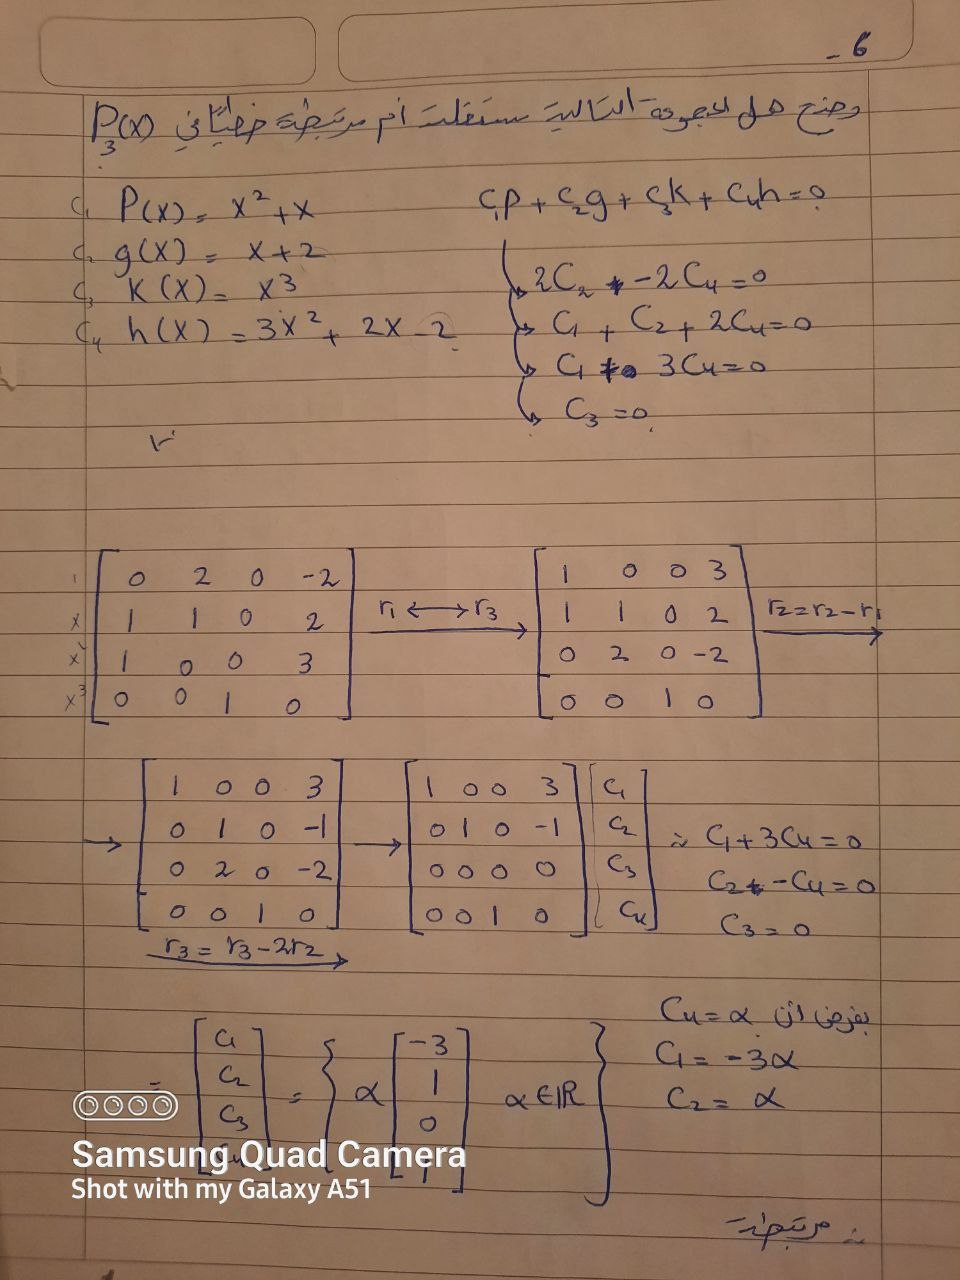 6 -
وضح هل المجموعة التالية مستقلة أم مرتبطة خطيًا في P₃(x)
C₁ P(x) = x² + x
C₂ g(x) = x + 2
C₃ K(x) = x³
C₄ h(x) = 3x² + 2x - 2
C₁P + C₂g + C₃k + C₄h = 0
2C₂ - 2C₄ = 0
C₁ + C₂ + 2C₄ = 0
C₁ + 3C₄ = 0
C₃ = 0
1 0 2 0 -2
x 1 1 0 2
x² 1 0 0 3
x³ 0 0 1 0
r₁ ↔ r₃
1 0 0 3
1 1 0 2
0 2 0 -2
0 0 1 0
r₂ = r₂ - r₁
→
1 0 0 3
0 1 0 -1
0 2 0 -2
0 0 1 0
r₃ = r₃ - 2r₂
→
1 0 0 3
0 1 0 -1
0 0 0 0
0 0 1 0
C₁
C₂
C₃
C₄
∴ C₁ + 3C₄ = 0
C₂ - C₄ = 0
C₃ = 0
بفرض ان C₄ = α
C₁ = -3α
C₂ = α
= [C₁ C₂ C₃ C₄] = { α [-3 1 0 1] α ∈ ℝ }
∴ مرتبطة
Samsung Quad Camera
Shot with my Galaxy A51